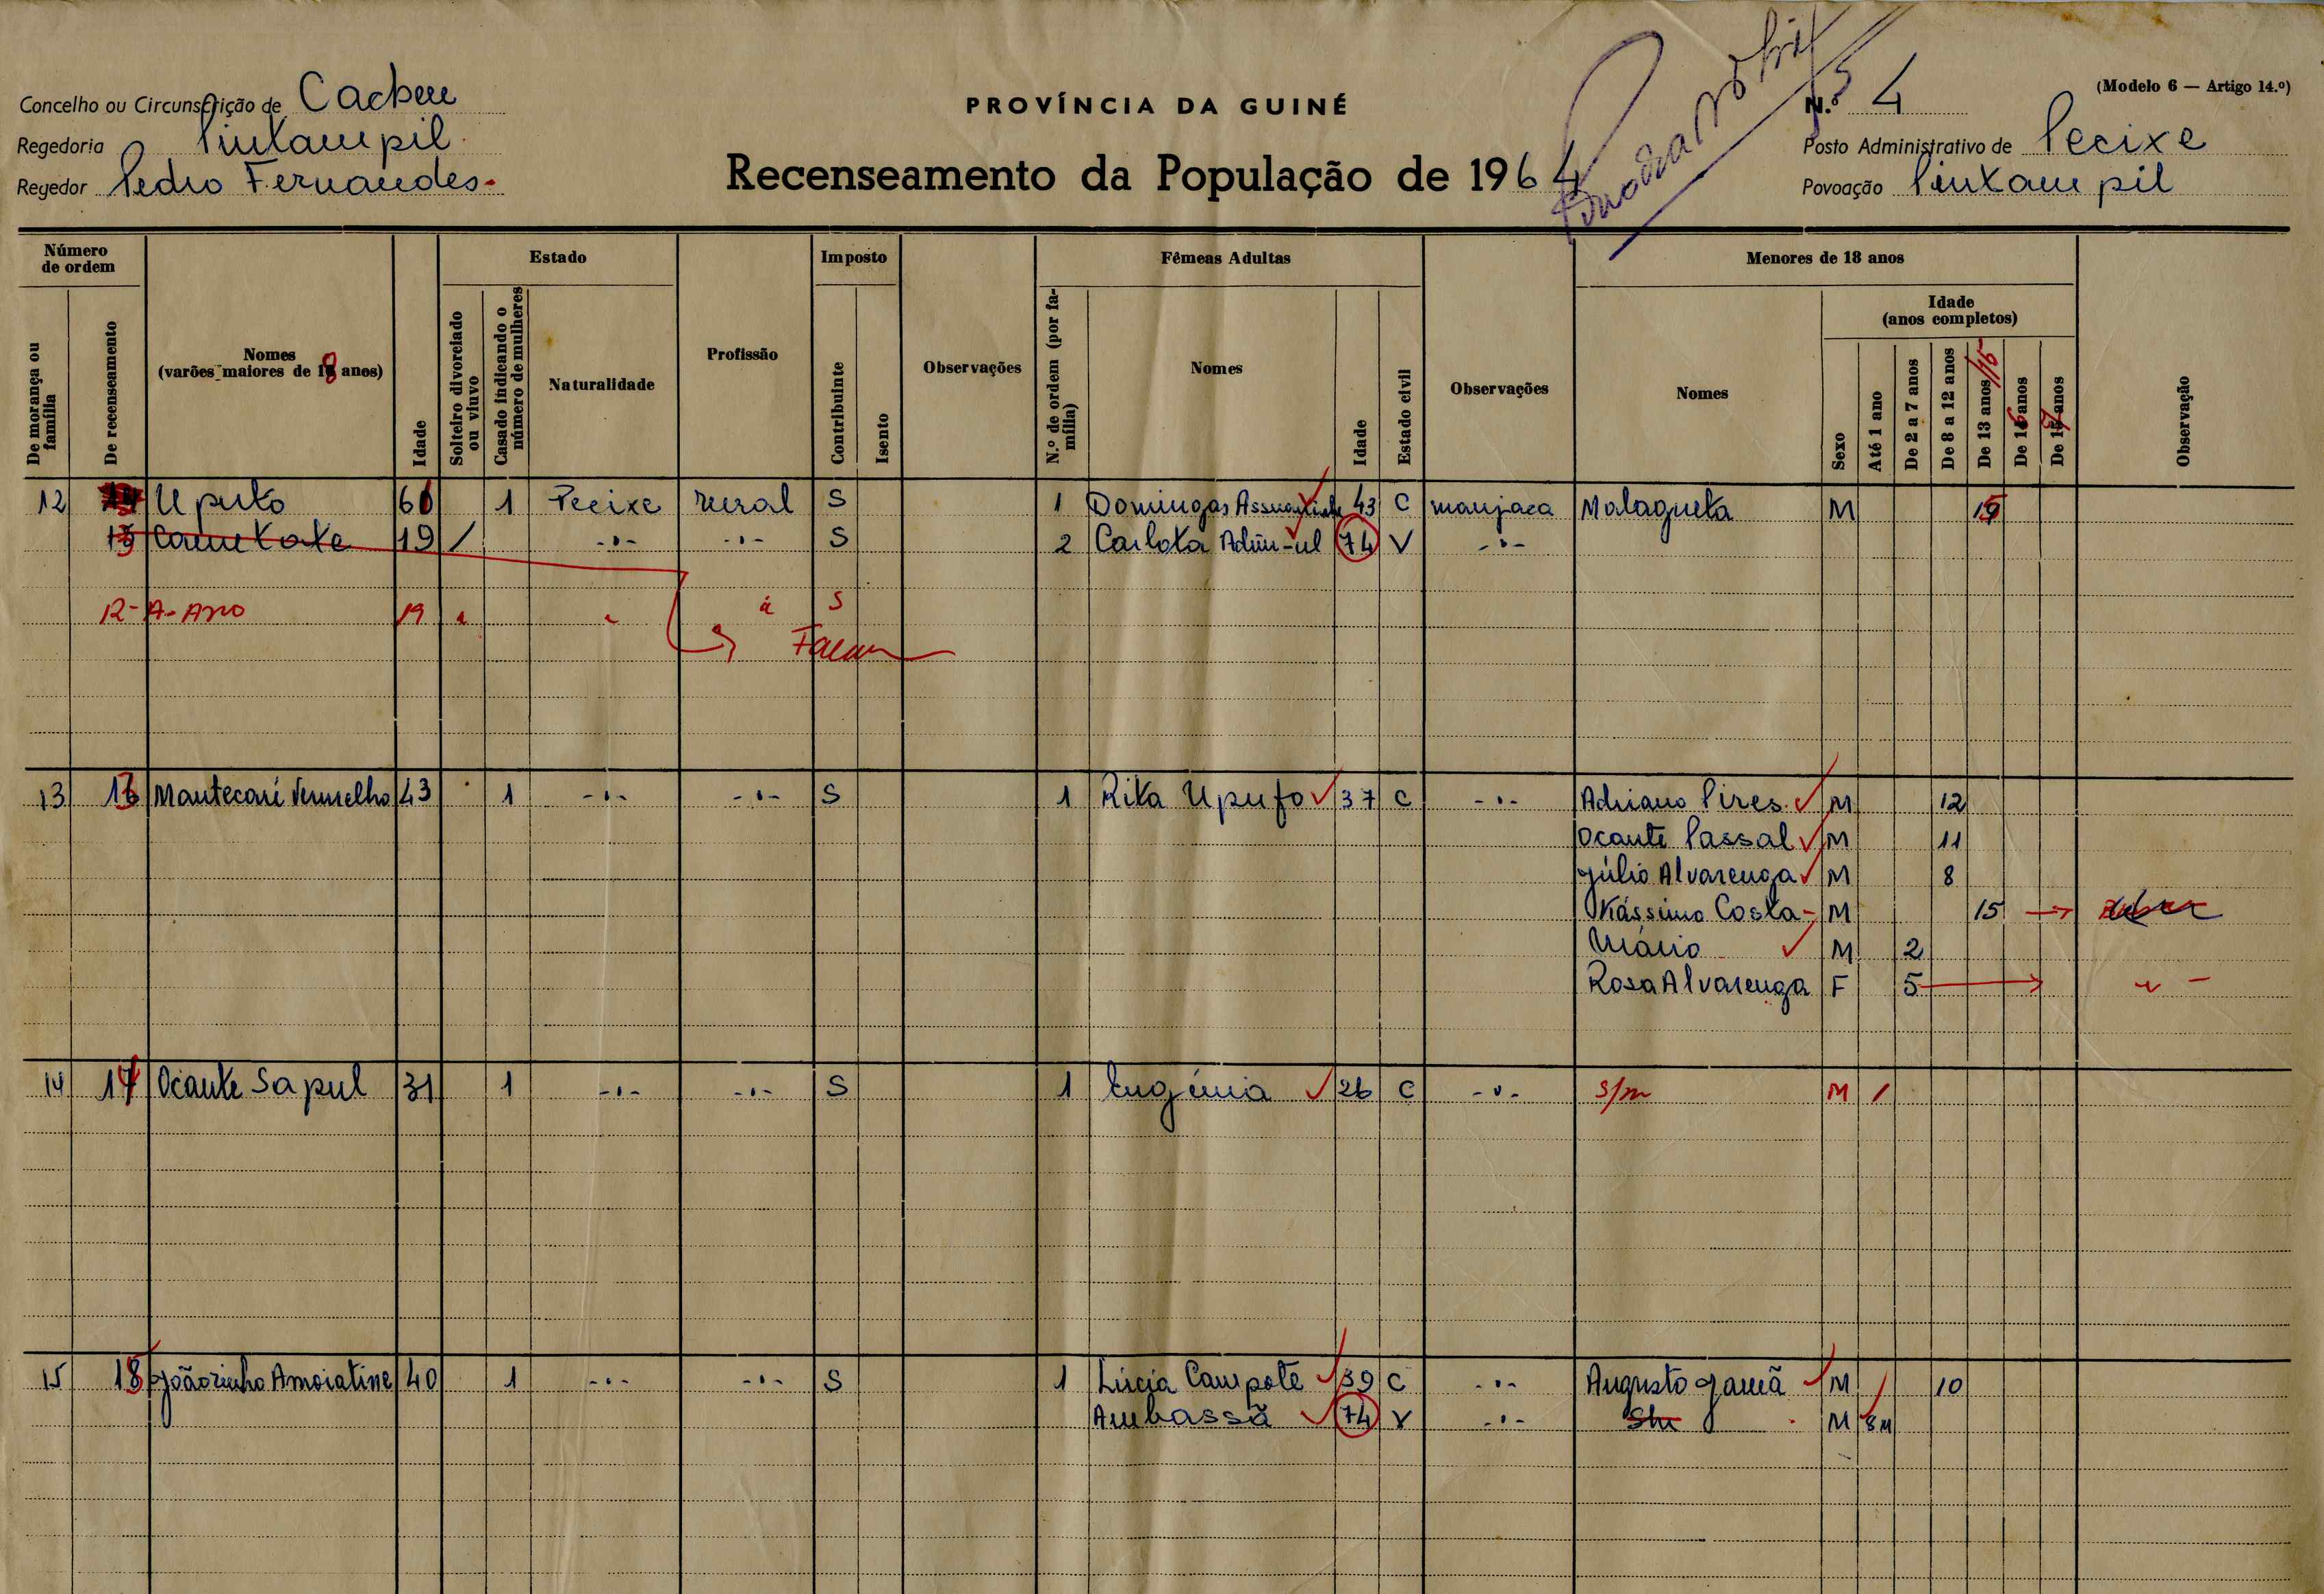 (Modelo 6 — Artigo 14.º)
Concelho ou Circunscrição de Cacheu
PROVÍNCIA DA GUINÉ
N.º 4
Regedoria Pintampil
Posto Administrativo de Pecixe
Regedor Pedro Fernandes
Recenseamento da População de 1964
Povoação Pintampil
Número de ordem
Estado
Imposto
Fêmeas Adultas
Menores de 18 anos
Idade
(anos completos)
De morança ou família
De recenseamento
Nomes
(varões maiores de 18 anos)
Idade
Solteiro divorciado ou viuvo
Casado indicando o número de mulheres
Naturalidade
Profissão
Contribuinte
Isento
Observações
N.º de ordem (por família)
Nomes
Idade
Estado civil
Observações
Nomes
Sexo
Até 1 ano
De 2 a 7 anos
De 8 a 12 anos
De 13 anos /15
De 16 anos
De 17 anos
Observação
12 Uputo 60 1 Pecixe rural S 1 Domingas 43 C manjaca Malagueta M 15
19 / -·- -·- S 2 Carlota 74 V -·-
12-A-Ano 19 S
13 13 Mantecari Vermelho 43 1 -·- -·- S 1 Rita Upufo 37 C -·- Adriano Pires M 12
Ocante Passal M 11
Júlio Alvarenga M 8
Kássimo Costa M 15
Mário M 2
Rosa Alvarenga F 5
14 14 Ocante Sapul 31 1 -·- -·- S 1 Eugénia 26 C -·- s/m M 1
15 15 Joãozinho Amoiatine 40 1 -·- -·- S 1 Lúcia Campote 39 C -·- Augusto Gamã M 10
Ambassã 74 V -·- S/n M 8M